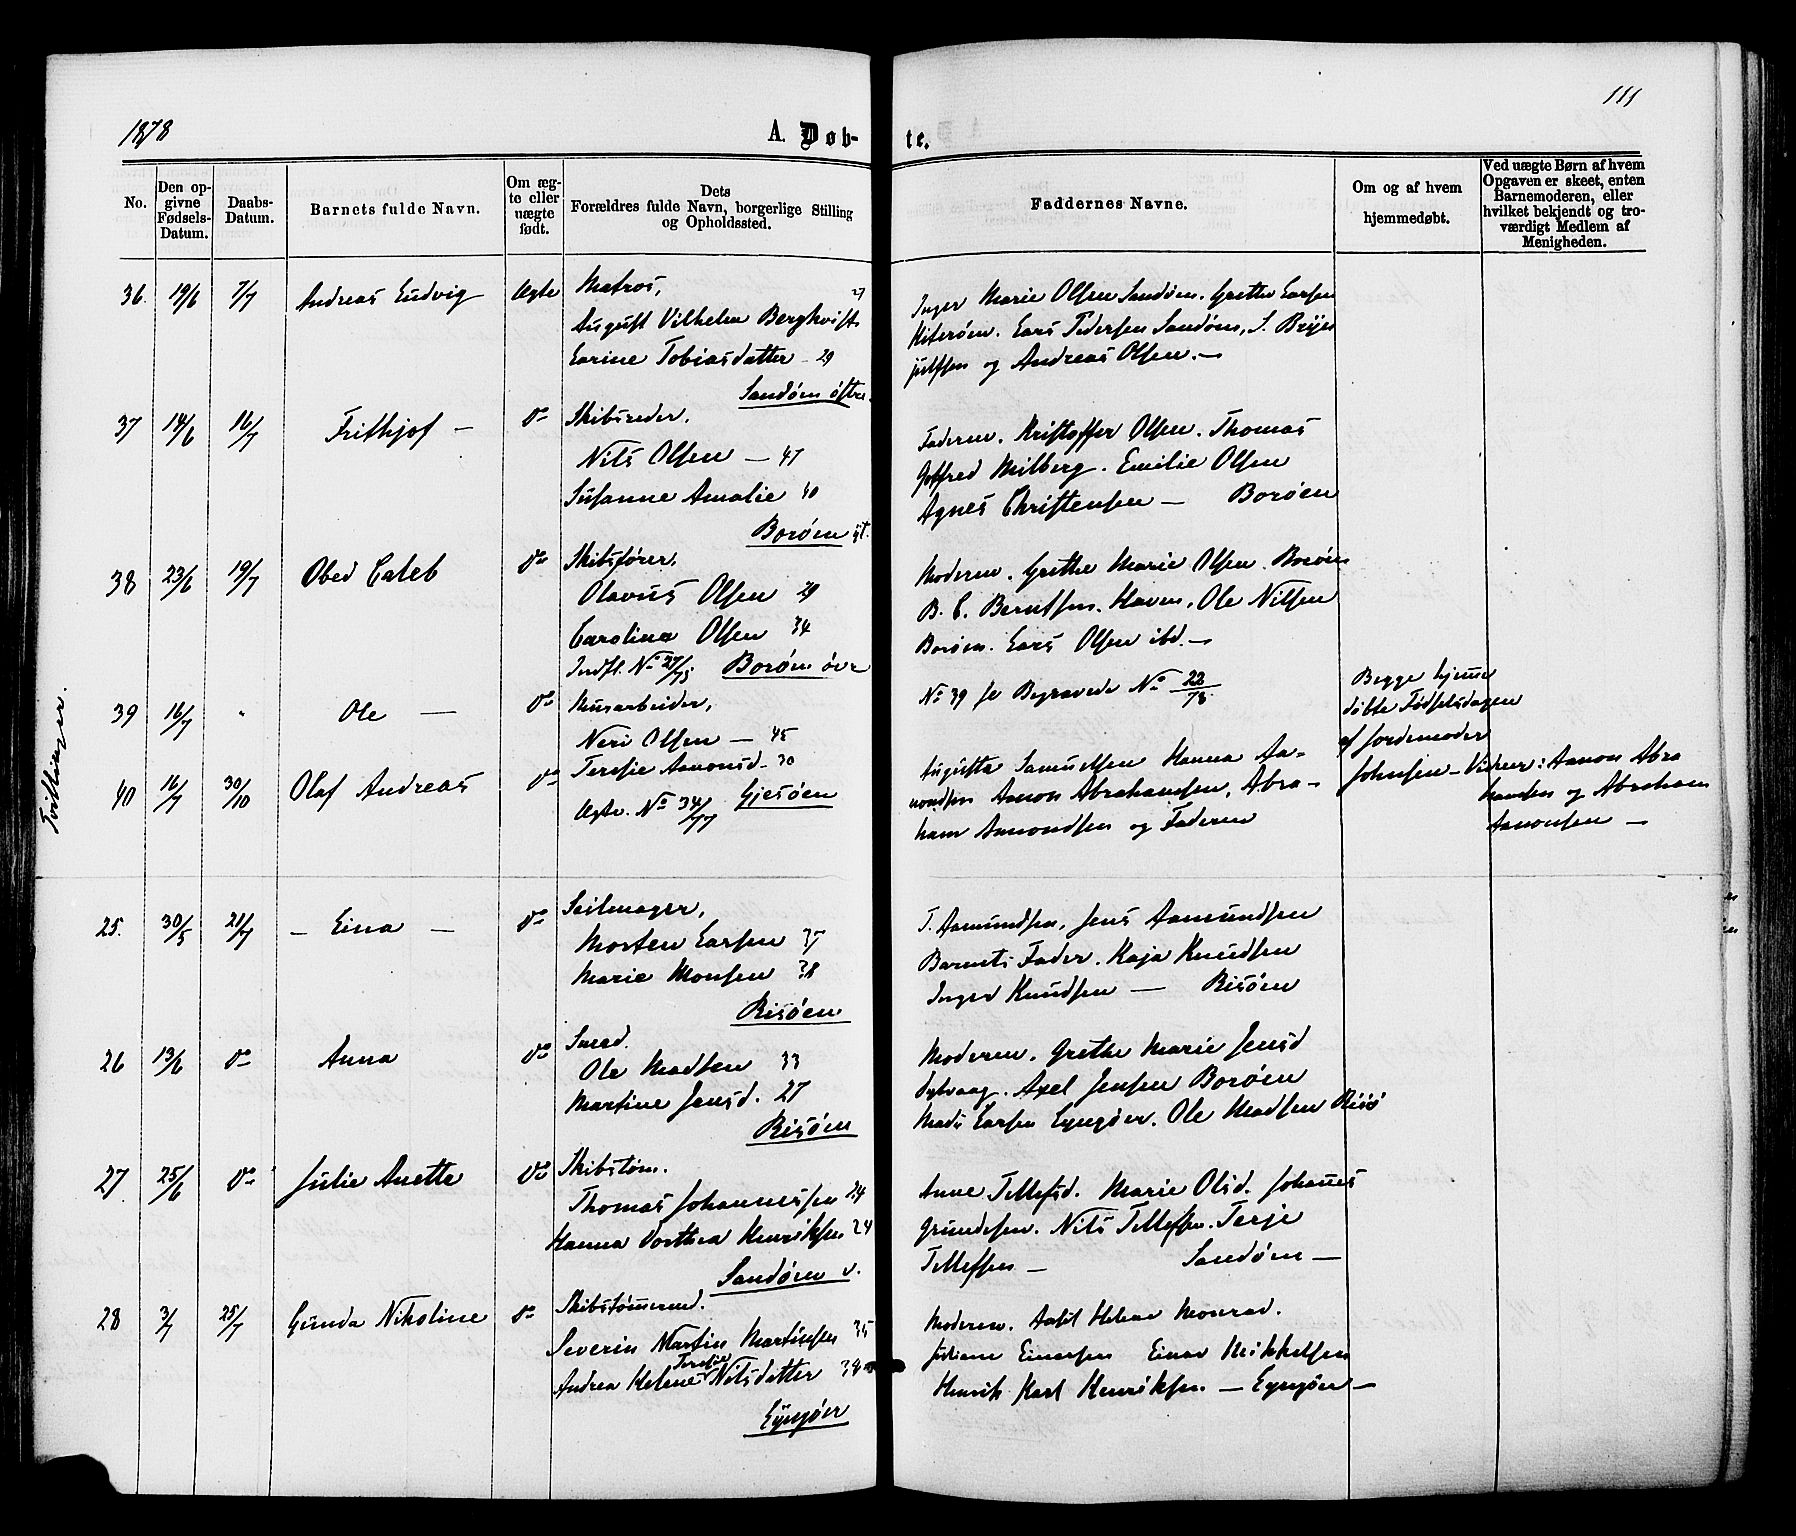 1878
A. Døb-
te.
111
No.
Den op-
givne
Fødsels-
Datum.
Daabs-
Datum.
Barnets fulde Navn.
Om æg-
te eller
uægte
født.
Dets
Forældres fulde Navn, borgerlige Stilling
og Opholdssted.
Faddernes Navne.
Om og af hvem
hjemmedøbt.
Ved uægte Børn af hvem
Opgaven er skeet, enten
Barnemoderen, eller
hvilket bekjendt og tro-
værdigt Medlem af
Menigheden.
36. 19/6 7/7 Andreas Ludvig Ægte Matros,
August Vilhelm Berghvist 27
Larine Tobiasdatter - 29
Sandøen østre.
Inger Marie Olsen Sandøen. Grethe Larsen
Kiterøen. Lars Pedersen Sandøen, S. Brijn
julfsen og Andreas Olsen. —
37 14/6 16/7 Frithjof — do Skibsreder,
Nils Olsen — 47
Susanne Amalie 40
Borøen yt.
Faderen. Kristoffer Olsen. Thomas
Gotfred Milberg. Emilie Olsen
Agnes Christensen — Borøen
38 23/6 19/7 Obed Caleb do Skibsfører,
Olavus Olsen 29
Carolina Olsen 34
Indfl. No 27/75 Borøen øvre
Moderen. Grethe Marie Olsen. Borøen
B. C. Berntsen. Haven, Ole Nilsen
Borøen. Lars Olsen ibd. —
Tvillinger.
39 16/7 " Ole — do Husarbeider,
Neri Olsen — 45
Teresie Aanonsd. 30
Ægte. No 34/77 Gjesøen
No 39 se Begravede No 22/78.
Begge hjemme
døbte Fødselsdagen
af Jordemoder
Johnsen —
40 16/7 30/10 Olaf Andreas do
Augusta Samuelsen Hanna Aa-
nondsen Aanon Abrahamsen, Abra-
ham Aanondsen og Faderen
Vidner: Aanon Abra
hamsen og Abraham
Aanonsen —
25. 30/5 21/7 — Lina — do Seilmager,
Morten Larsen 37
Marie Monsen 38
Risøen
T. Aamundsen, Jens Aamundsen
Barnets Fader. Kaja Knudsen
Inger Knudsen — Risøen
26 13/6 do Anna do Smed.
Ole Madsen 33
Martine Jensd. 27
Risøen
Moderen. Grethe Marie Jensd
Dybvaag. Axel Jensen Borøen
Mads Larsen Lyngøer. Ole Madsen Risø
27 25/6 do Julie Anette do Skibstøm.
Thomas Johannessen 24
Hanna Dorthea Henriksen 24
Sandøen v.
Anne Tellefsd. Marie Olsd. Johannes
Grundesen. Nils Tellefsen. Terje
Tellefsen — Sandøen —
28 3/7 25/7 Gunda Nikoline do Skibstømmermd.
Severin Martin Martinsen 35
Andrea Helene Teresie Nilsdatter 38
Lyngøer
Moderen. Aasil Helene Monrad.
Juliane Einersen Einar Mikkelsen
Henrik Karl Henriksen. — Lyngøer —